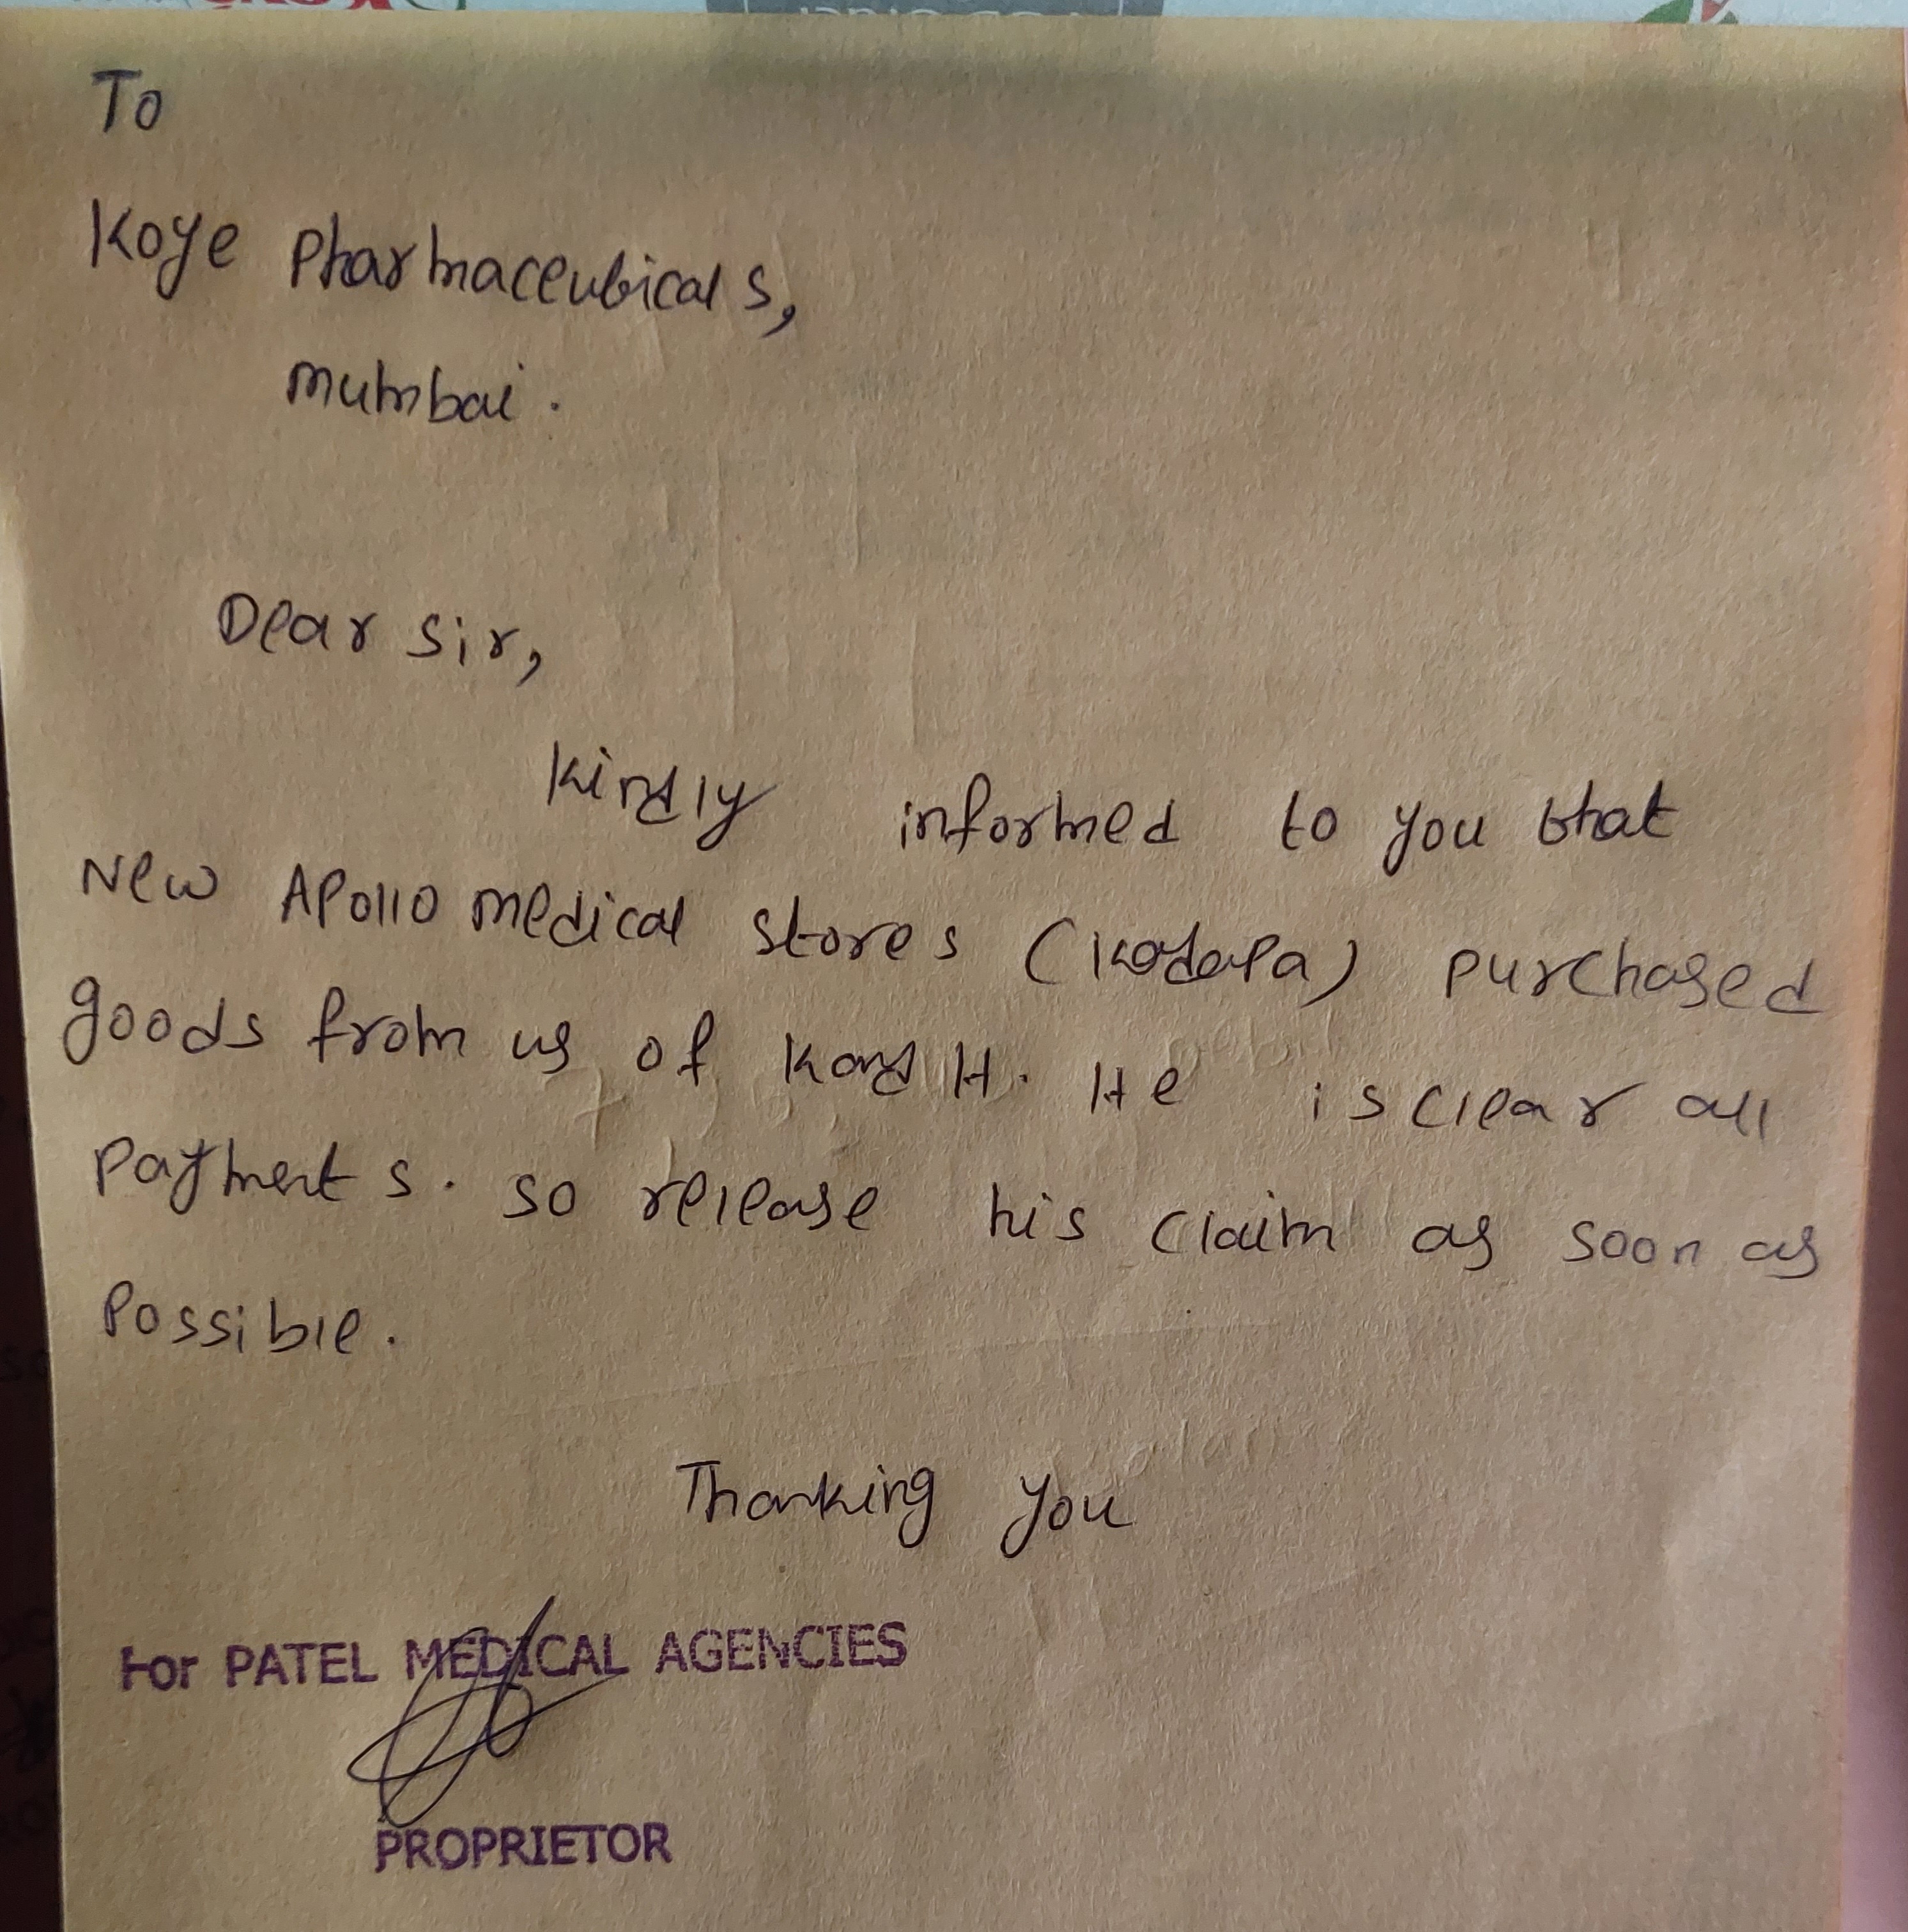 To
Koye Pharmaceuticals,
Mumbai.
Dear Sir,
Kindly informed to you that
New Apollo medical stores (Kadapa) purchased
goods from us of Kond H. He is clear all
Payments. So release his claim as soon as
Possible.
Thanking you
For PATEL MEDICAL AGENCIES
PROPRIETOR